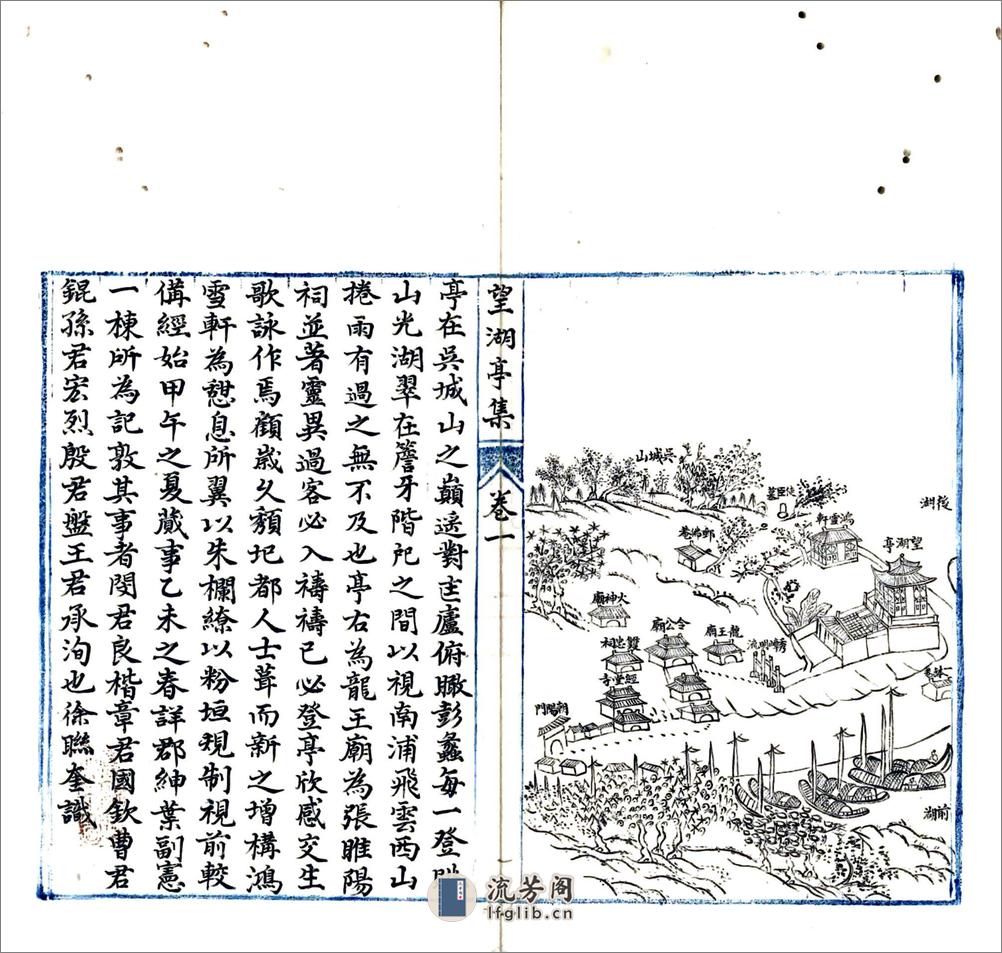 後湖
望湖亭
鴻雪軒
吳城山
火神廟
龍王廟
令公廟
雙忠祠
經堂寺
朝陽門
前湖
望湖亭集
卷一
亭在吳城山之巔遙對匡廬俯瞰彭蠡每一登眺
山光湖翠在簷牙階戺之間以視南浦飛雲西山
捲雨有過之無不及也亭右為龍王廟為張睢陽
祠並著靈異過客必入禱禱已必登亭欣感交生
歌詠作焉顧歲久頹圮都人士葺而新之增構鴻
雪軒為憇息所翼以朱欄繚以粉垣規制視前較
備經始甲午之夏蕆事乙未之春詳郡紳葉副憲
一棟所為記敦其事者閔君良楷章君國欽曹君
錕孫君宏烈殷君盤王君承洵也徐聯奎識
流芳阁
lfglib.cn